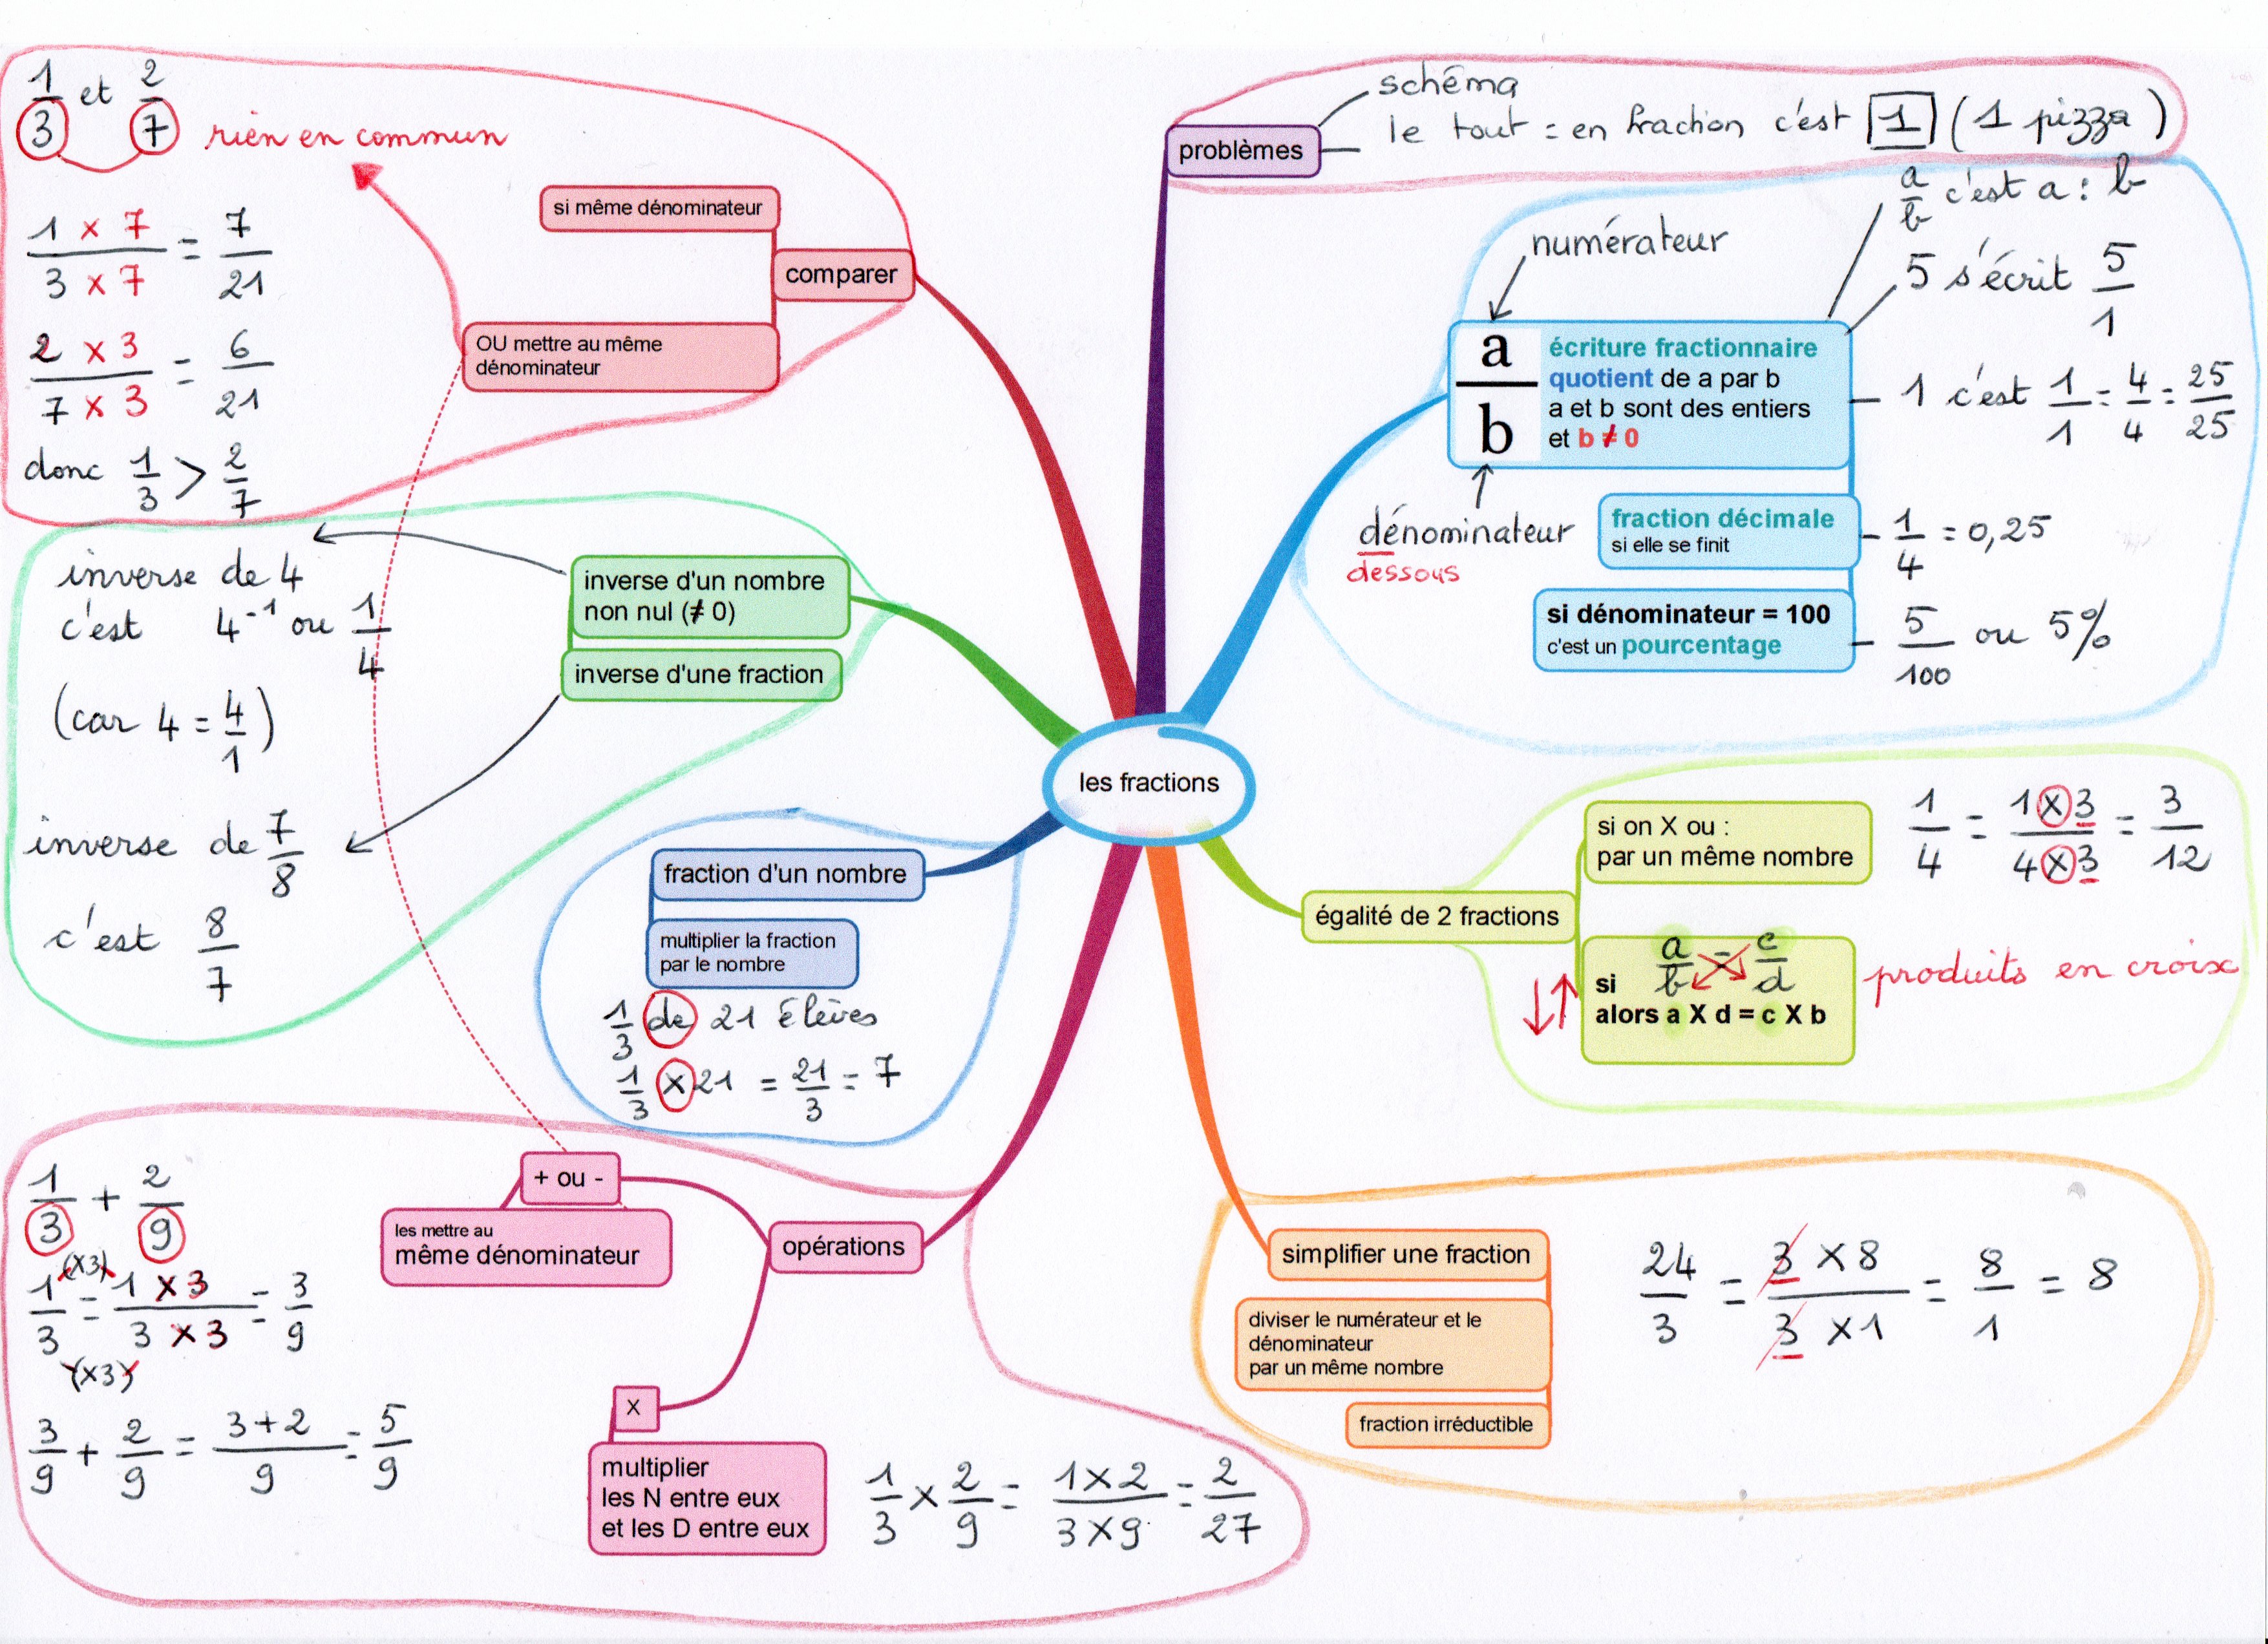 les fractions
problèmes
schéma
le tout = en fraction c'est 1 (1 pizza)
numérateur
a/b
écriture fractionnaire
quotient de a par b
a et b sont des entiers
et b ≠ 0
dénominateur
dessous
a/b c'est a : b
5 s'écrit 5/1
1 c'est 1/1 = 4/4 = 25/25
fraction décimale
si elle se finit
1/4 = 0,25
si dénominateur = 100
c'est un pourcentage
5/100 ou 5%
égalité de 2 fractions
si on X ou :
par un même nombre
1/4 = 1 x 3/4 x 3 = 3/12
si a/b = c/d
alors a X d = c X b
produits en croix
simplifier une fraction
diviser le numérateur et le
dénominateur
par un même nombre
fraction irréductible
24/3 = 3 x 8/3 x 1 = 8/1 = 8
comparer
si même dénominateur
OU mettre au même
dénominateur
1/3 et 2/7
rien en commun
1 x 7/3 x 7 = 7/21
2 x 3/7 x 3 = 6/21
donc 1/3 > 2/7
inverse d'un nombre
non nul (≠ 0)
inverse d'une fraction
inverse de 4
c'est 4⁻¹ ou 1/4
(car 4 = 4/1)
inverse de 7/8
c'est 8/7
fraction d'un nombre
multiplier la fraction
par le nombre
1/3 de 21 élèves
1/3 x 21 = 21/3 = 7
opérations
+ ou -
les mettre au
même dénominateur
1/3 + 2/9
(x3)
1/3 = 1 x 3/3 x 3 = 3/9
(x3)
3/9 + 2/9 = 3+2/9 = 5/9
X
multiplier
les N entre eux
et les D entre eux
1/3 x 2/9 = 1 x 2/3 x 9 = 2/27